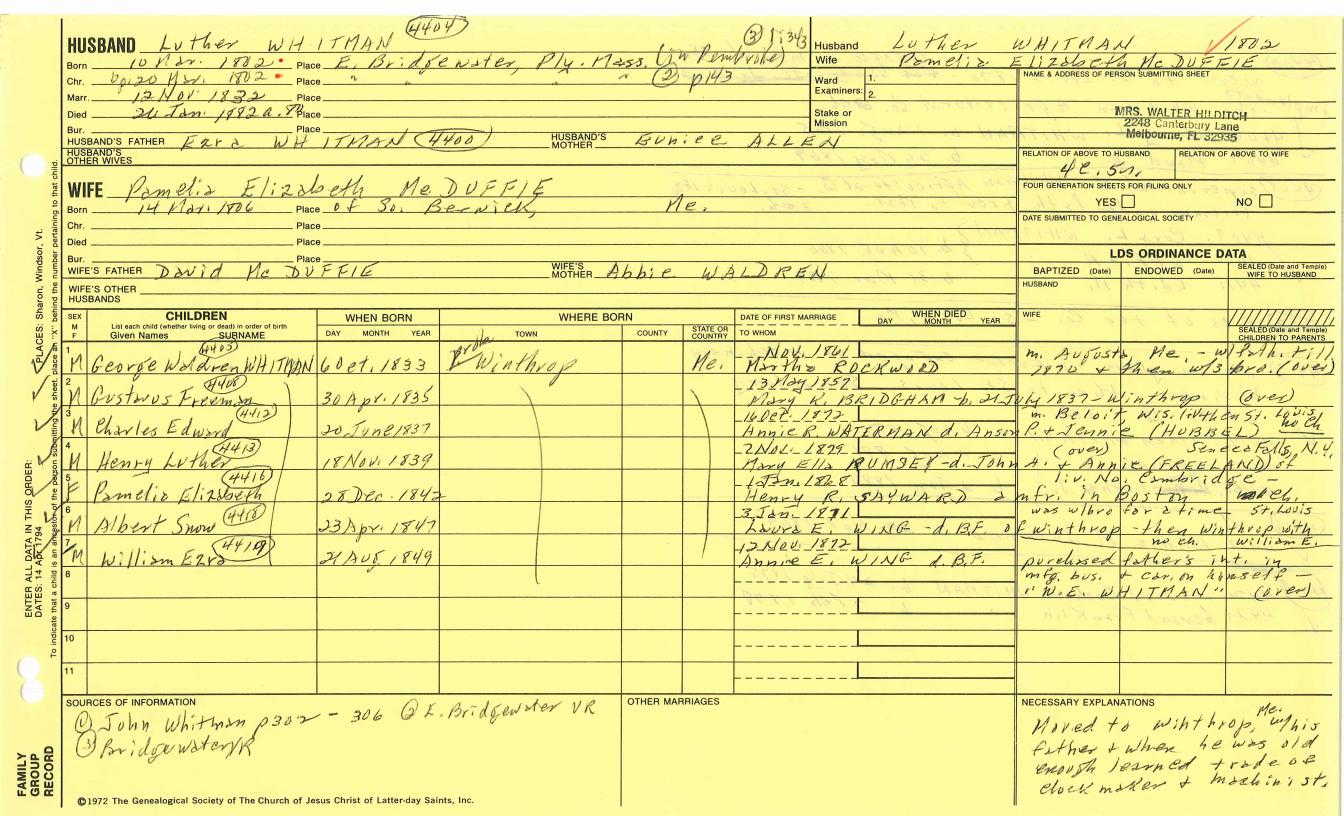 4404
HUSBAND Luther WHITMAN
③ 1:343
Born 10 Mar. 1802 Place E. Bridgewater, Ply. Mass. (in Pembroke)
Chr. 20 Mar. 1802 Place " " " ② p143
Marr. 12 Nov 1832 Place
Died 26 Jan. 1882 Place
Bur. Place
HUSBAND'S FATHER Ezra WHITMAN 4400 HUSBAND'S MOTHER Eunice ALLEN
HUSBAND'S OTHER WIVES
WIFE Pamelia Elizabeth Mc DUFFIE
Born 14 Mar. 1806 Place of So. Berwick, Me.
Chr. Place
Died Place
Bur. Place
WIFE'S FATHER David Mc DUFFIE WIFE'S MOTHER Abbie WALDREN
WIFE'S OTHER HUSBANDS
Husband Luther WHITMAN 1802
Wife Pamelia Elizabeth Mc DUFFIE
Ward Examiners: 1. 2.
Stake or Mission
NAME & ADDRESS OF PERSON SUBMITTING SHEET
MRS. WALTER HILDITCH
2248 Canterbury Lane
Melbourne, FL 32935
RELATION OF ABOVE TO HUSBAND RELATION OF ABOVE TO WIFE
FOUR GENERATION SHEETS FOR FILING ONLY
YES NO
DATE SUBMITTED TO GENEALOGICAL SOCIETY
LDS ORDINANCE DATA
BAPTIZED (Date) ENDOWED (Date) SEALED (Date and Temple) WIFE TO HUSBAND
HUSBAND
WIFE
SEALED (Date and Temple) CHILDREN TO PARENTS
SEX M F
CHILDREN
List each child (whether living or dead) in order of birth
Given Names SURNAME
WHEN BORN
DAY MONTH YEAR
WHERE BORN
TOWN COUNTY STATE OR COUNTRY
DATE OF FIRST MARRIAGE
TO WHOM
WHEN DIED
DAY MONTH YEAR
1 M George Waldren WHITMAN 4405 6 Oct. 1833 prob. Winthrop Me. Nov. 1861
Martha ROCKWOOD
m. Augusta, Me. - w/fath. till
1870 & then w/3 bro. (over)
2 M Gustavus Freeman 4408 30 Apr. 1835 13 May 1857
Mary K. BRIDGHAM - b. 21 July 1837 - Winthrop (over)
3 M Charles Edward 4412 20 June 1837 16 Dec. 1872
Annie R. WATERMAN d. Anson P. & Jennie (HUBBEL) no ch
m. Beloit, Wis. liv. then St. Louis
4 M Henry Luther 4413 18 Nov. 1839 2 Nov. 1879
Mary Ella RUMSEY - d. John A. & Annie (FREELAND) of
(over) Seneca Falls, N.Y.
5 F Pamelia Elizabeth 4416 28 Dec. 1842 1 Jan. 1868
Henry R. SAYWARD a mfr. in Boston no ch.
liv. No. Cambridge -
6 M Albert Snow 4418 23 Apr. 1847 3 Jan. 1871
Laura E. WING - d. B.F. of Winthrop - then Winthrop with
was w/bro for a time St. Louis
no ch. William E.
7 M William Ezra 4419 21 Aug. 1849 12 Nov. 1872
Annie E. WING d. B.F.
purchased father's int. in
mfg. bus. & car. on himself -
"W.E. WHITMAN" (over)
8
9
10
11
SOURCES OF INFORMATION
① John Whitman p302 - 306 ② E. Bridgewater VR
③ Bridgewater VR
OTHER MARRIAGES
NECESSARY EXPLANATIONS
Moved to Winthrop, Me. w/his
father & when he was old
enough learned trade of
clock maker & machinist.
©1972 The Genealogical Society of The Church of Jesus Christ of Latter-day Saints, Inc.
FAMILY GROUP RECORD
ENTER ALL DATA IN THIS ORDER:
DATES: 14 Apr 1794 PLACES: Sharon, Windsor, Vt.
To indicate that a child is an ancestor of the person submitting the sheet, place an "X" behind the number pertaining to that child.